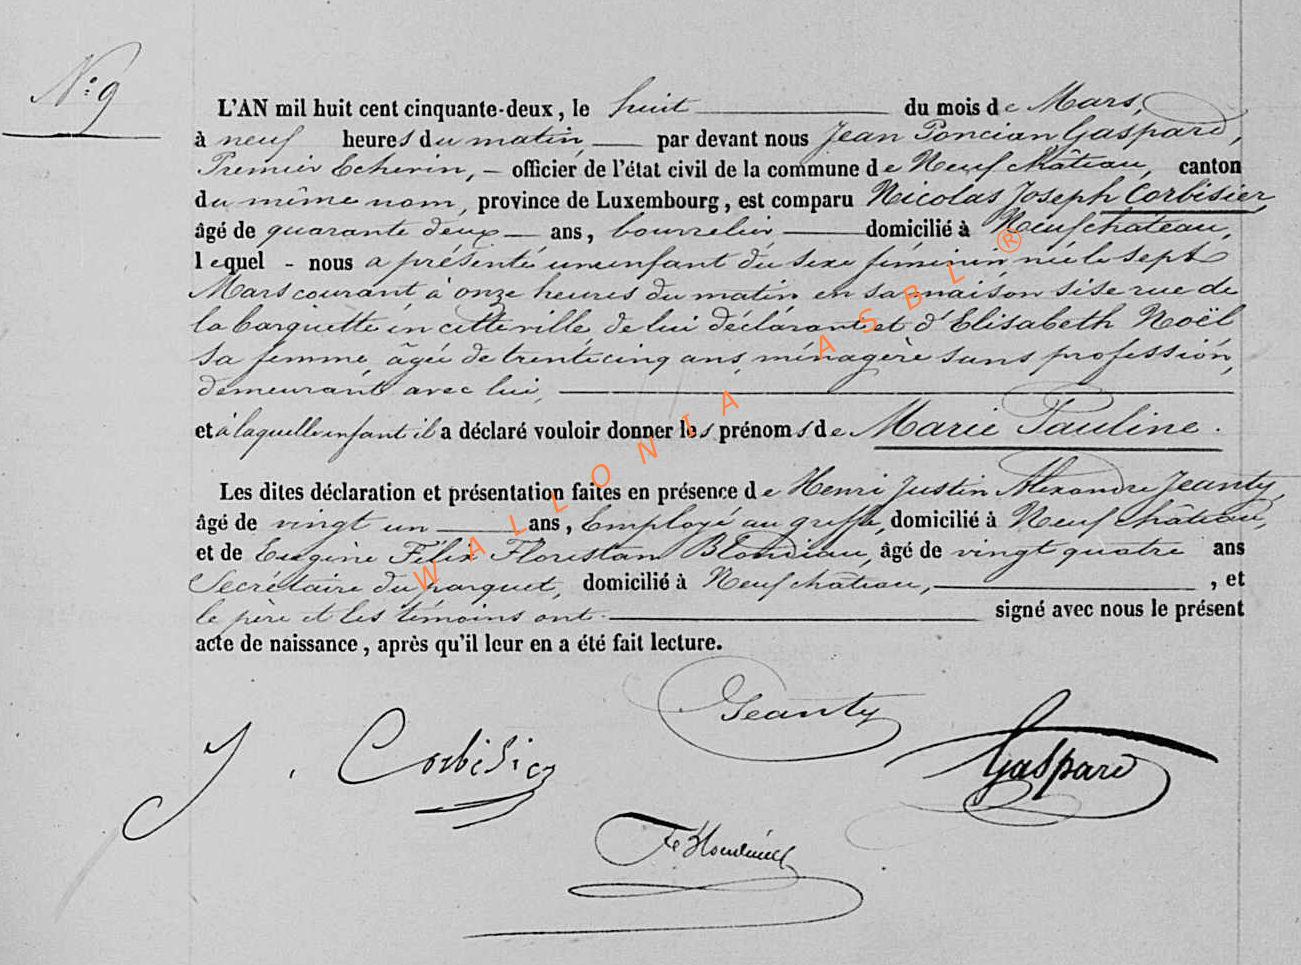 N° 9
L'AN mil huit cent cinquante-deux, le huit du mois de Mars,
à neuf heures du matin, par devant nous Jean Poncian Gaspard,
Premier Echevin, – officier de l'état civil de la commune de Neufchâteau, canton
du même nom, province de Luxembourg, est comparu Nicolas Joseph Corbisier,
âgé de quarante deux ans, bourrelier domicilié à Neufchateau,
lequel - nous a présenté un enfant du sexe féminin, née le sept
Mars courant à onze heures du matin, en sa maison sise rue de
la barquette en cette ville, de lui déclarant et d'Elisabeth Noël
sa femme, âgée de trente cinq ans, ménagère sans profession,
demeurant avec lui,
et à laquelle enfant il a déclaré vouloir donner les prénoms de Marie Pauline.
Les dites déclaration et présentation faites en présence de Henri Justin Alexandre Jeanty,
âgé de vingt un ans, Employé au greffe, domicilié à Neufchâteau,
et de Eugène Félix Florestan Blondiau, âgé de vingt quatre ans
Secrétaire du parquet, domicilié à Neufchâteau, , et
le père et les témoins ont signé avec nous le présent
acte de naissance, après qu'il leur en a été fait lecture.
Jeanty
J. Corbisier
Gaspard
WALLONIA ASBL ®